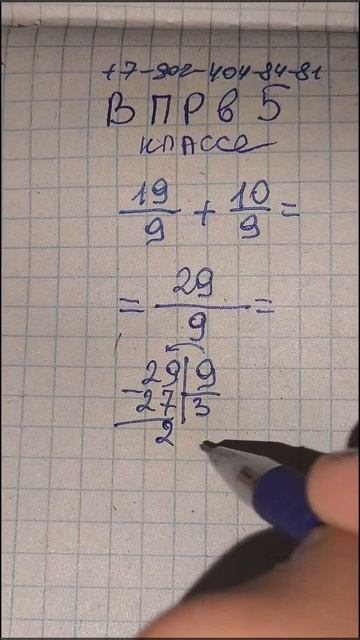 +7-902-404-84-81
ВПР в 5
классе
19/9 + 10/9 =
= 29/9 =
29 | 9
- 27 | 3
2